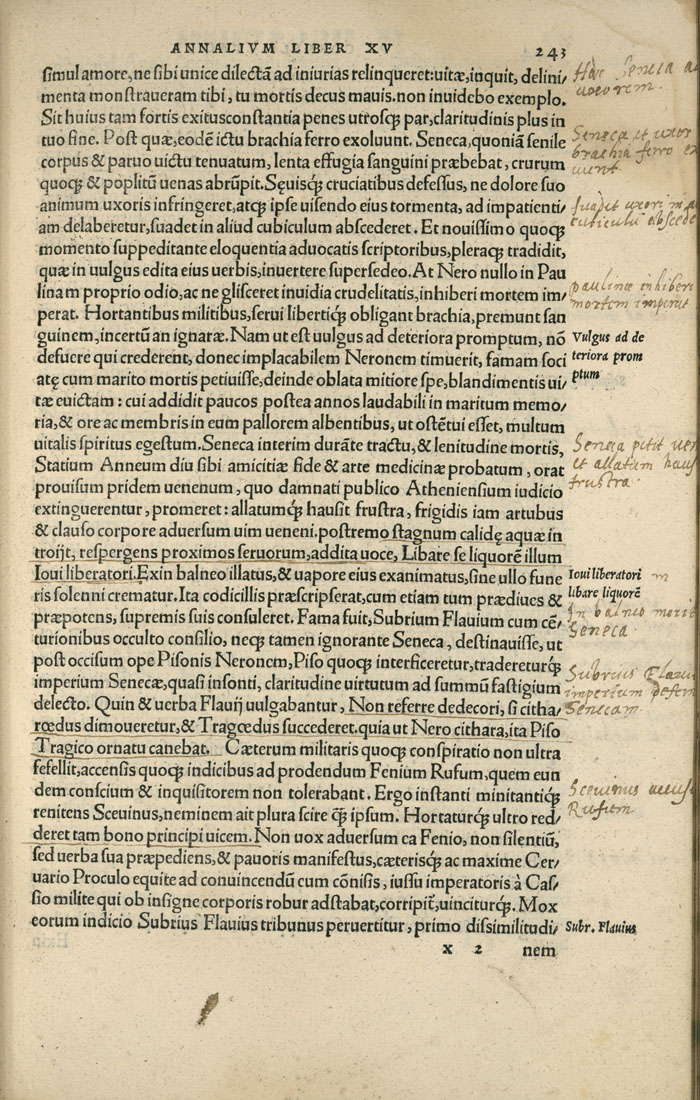 ANNALIVM LIBER XV
243
simul amore, ne sibi unice dilectã ad iniurias relinqueret: uitæ, inquit, delini/
menta monstraueram tibi, tu mortis decus mauis. non inuidebo exemplo.
Sit huius tam fortis exitus constantia penes utrosq; par, claritudinis plus in
tuo fine. Post quæ, eodẽ ictu brachia ferro exoluunt. Seneca, quoniã senile
corpus & paruo uictu tenuatum, lenta effugia sanguini præbebat, crurum
quoq; & poplitũ uenas abrũpit. Sęuisq; cruciatibus defessus, ne dolore suo
animum uxoris infringeret, atq; ipse uisendo eius tormenta, ad impatienti/
am delaberetur, suadet in aliud cubiculum abscederet. Et nouissimo quoq;
momento suppeditante eloquentia aduocatis scriptoribus, pleraq; tradidit,
quæ in uulgus edita eius uerbis, inuertere supersedeo. At Nero nullo in Pau
linam proprio odio, ac ne glisceret inuidia crudelitatis, inhiberi mortem im/
perat. Hortantibus militibus, serui libertiq; obligant brachia, premunt san
guinem, incertũ an ignaræ. Nam ut est uulgus ad deteriora promptum, nõ
defuere qui crederent, donec implacabilem Neronem timuerit, famam soci
atę cum marito mortis petiuisse, deinde oblata mitiore spe, blandimentis ui/
tæ euictam: cui addidit paucos postea annos laudabili in maritum memo/
ria, & ore ac membris in eum pallorem albentibus, ut ostẽtui esset, multum
uitalis spiritus egestum. Seneca interim durãte tractu, & lenitudine mortis,
Statium Anneum diu sibi amicitiæ fide & arte medicinæ probatum, orat
prouisum pridem uenenum, quo damnati publico Atheniensium iudicio
extinguerentur, promeret: allatumq; hausit frustra, frigidis iam artubus
& clauso corpore aduersum uim ueneni. postremo stagnum calidę aquæ in
troijt, respergens proximos seruorum, addita uoce, Libare se liquorẽ illum
Ioui liberatori. Exin balneo illatus, & uapore eius exanimatus, sine ullo fune
ris solenni crematur. Ita codicillis præscripserat, cum etiam tum prædiues &
præpotens, supremis suis consuleret. Fama fuit, Subrium Flauium cum cẽ/
turionibus occulto consilio, neq; tamen ignorante Seneca, destinauisse, ut
post occisum ope Pisonis Neronem, Piso quoq; interficeretur, tradereturq;
imperium Senecæ, quasi insonti, claritudine uirtutum ad summũ fastigium
delecto. Quin & uerba Flauij uulgabantur, Non referre dedecori, si citha/
rœdus dimoueretur, & Tragœdus succederet. quia ut Nero cithara, ita Piso
Tragico ornatu canebat. Cæterum militaris quoq; conspiratio non ultra
fefellit, accensis quoq; indicibus ad prodendum Fenium Rufum, quem eun
dem conscium & inquisitorem non tolerabant. Ergo instanti minitantiq;
renitens Sceuinus, neminem ait plura scire q̃ ipsum. Hortaturq; ultro red/
deret tam bono principi uicem. Non uox aduersum ea Fenio, non silentiũ,
sed uerba sua præpediens, & pauoris manifestus, cæterisq; ac maxime Cer/
uario Proculo equite ad conuincendũ cum cõnisis, iussu imperatoris à Cas/
sio milite qui ob insigne corporis robur adstabat, corripit̃, uinciturq;. Mox
eorum indicio Subrius Flauius tribunus peruertitur, primo dissimilitudi/
x 2 nem
Hæc Seneca ad
uxorem.
Seneca et uxor
brachia ferro ex
uunt
suadet uxori
cubiculũ abscede
paulinæ inhiberi
mortem imperat
Vulgus ad de
teriora prom
ptum
Seneca petit uen
et allatum haus
frustra.
Ioui liberatori
libare liquorẽ
in balneo mori
Seneca.
Subrius Flaui
imperium destin
Senecam.
Sceuinus accus
Rufum
Subr. Flauius